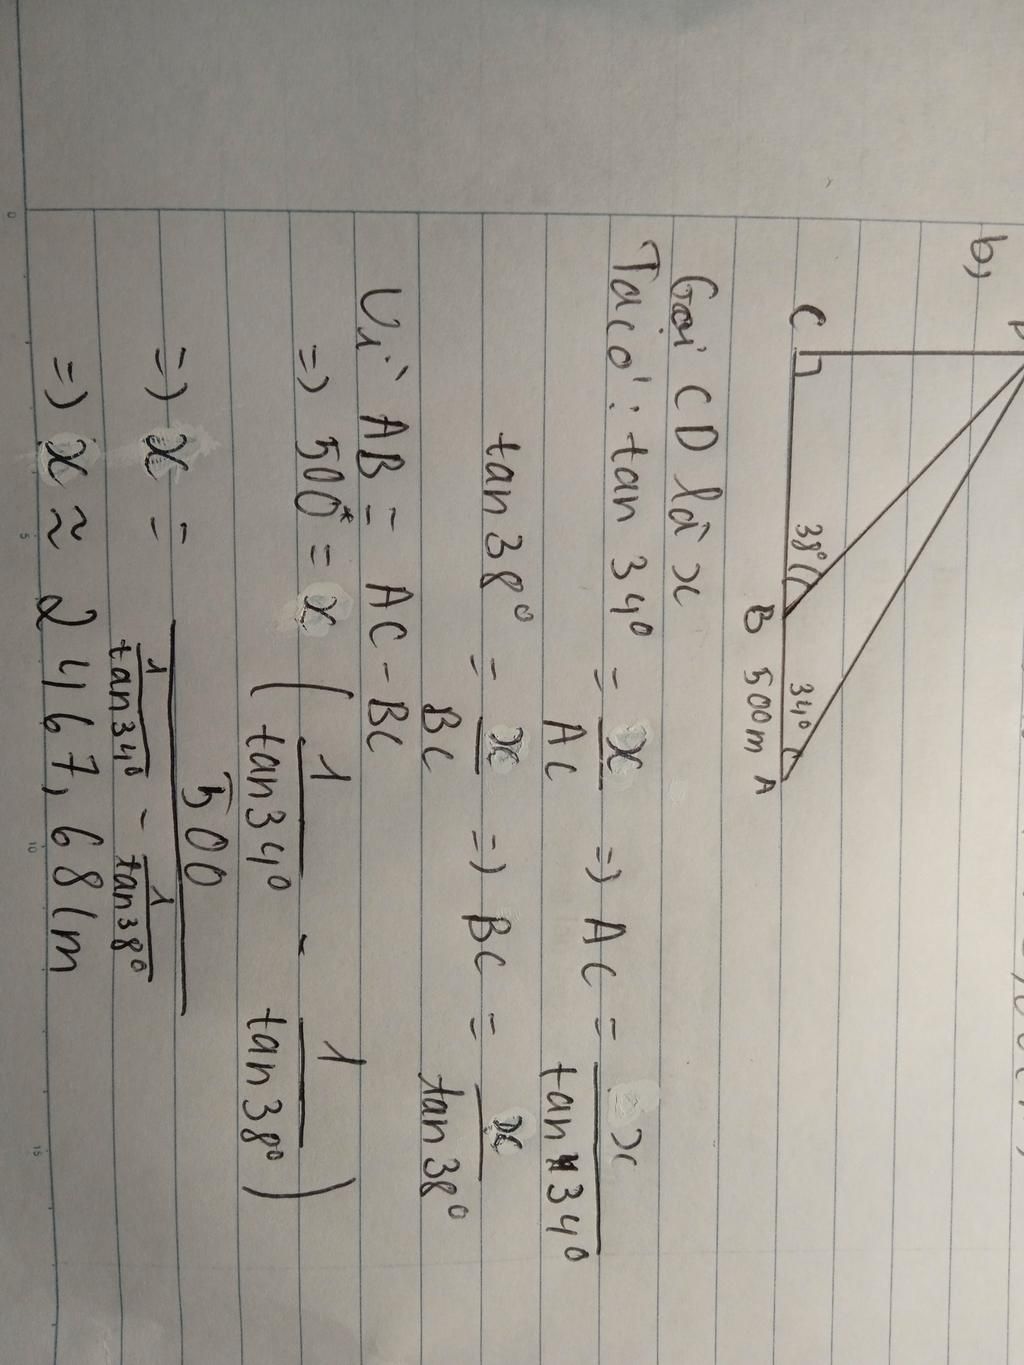 b,
C
38°
B
500m
34°
A
Gọi CD là x
Ta có: tan 34° = x/AC => AC = x/tan 34°
tan 38° = x/BC => BC = x/tan 38°
Vì AB = AC - BC
=> 500 = x (1/tan 34° - 1/tan 38°)
=> x = 500/(1/tan 34° - 1/tan 38°)
=> x ≈ 2467,68 (m